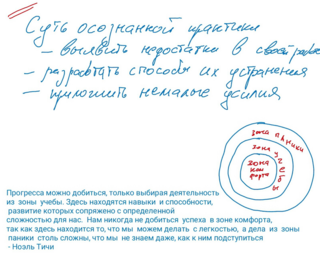 Суть осознанной практики
- выявить недостатки в своей работе
- разработать способы их устранения
- приложить немалые усилия
зона паники
зона учебы
зона
ком
форта
Прогресса можно добиться, только выбирая деятельность
из зоны учебы. Здесь находятся навыки и способности,
развитие которых сопряжено с определенной
сложностью для нас. Нам никогда не добиться успеха в зоне комфорта,
так как здесь находится то, что мы можем делать с легкостью, а дела из зоны
паники столь сложны, что мы не знаем даже, как к ним подступиться
- Ноэль Тичи